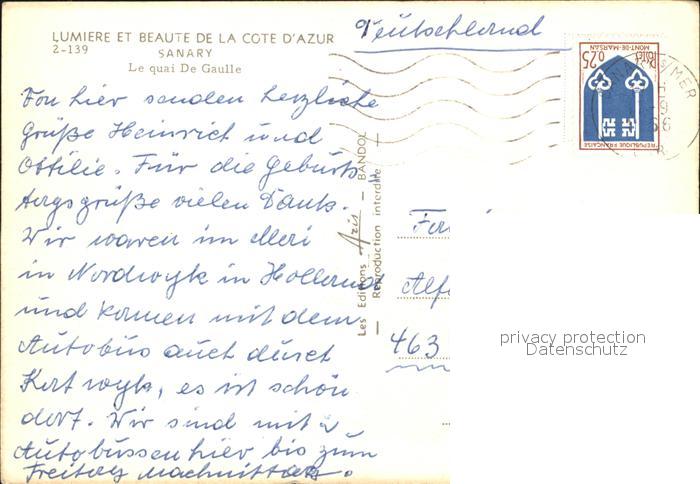 LUMIERE ET BEAUTE DE LA COTE D'AZUR
2-139
SANARY
Le quai De Gaulle
Deutschland
0,25
POSTES
MONT-DE-MARSAN
REPUBLIQUE FRANÇAISE
MER
Von hier senden herzliche
Grüße Heinrich und
Ottilie. Für die Geburts
tagsgrüße vielen Dank.
Wir waren im Mai
in Nordwyk in Holland
und kamen mit dem
Autobus auch durch
Katwyk, es ist schön
dort. Wir sind mit 2
Autobussen hier bis zum
Freitag Nachmittag.
Les Editions Aris - BANDOL
Reproduction interdite
463
privacy protection
Datenschutz